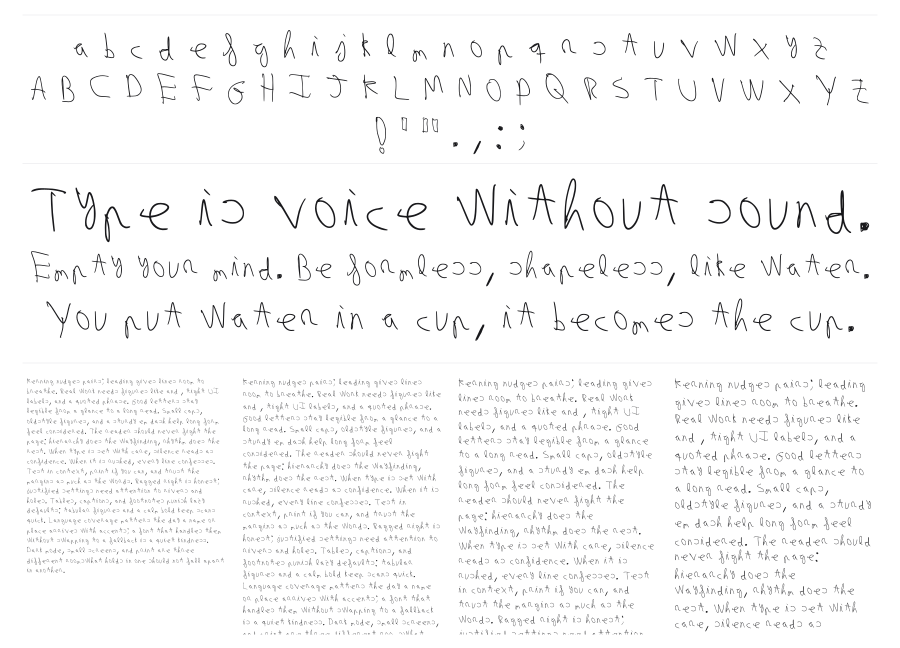 a b c d e f g h i j k l m n o p q r s t u v w x y z
A B C D E F G H I J K L M N O P Q R S T U V W X Y Z
! ' " . , : ;
Type is voice without sound.
Empty your mind. Be formless, shapeless, like water.
You put water in a cup, it becomes the cup.
Kerning nudges pairs; leading gives lines room to
breathe. Real work needs figures like and , tight UI
labels, and a quoted phrase. Good letters stay
legible from a glance to a long read. Small caps,
oldstyle figures, and a sturdy em dash help long form
feel considered. The reader should never fight the
page; hierarchy does the wayfinding, rhythm does the
rest. When type is set with care, silence reads as
confidence. When it is rushed, every line confesses.
Test in context, print if you can, and trust the
margins as much as the words. Ragged right is honest;
justified settings need attention to rivers and
holes. Tables, captions, and footnotes punish lazy
defaults; tabular figures and a calm bold keep scans
quick. Language coverage matters the day a name or
place arrives with accents; a font that handles them
without swapping to a fallback is a quiet kindness.
Dark mode, small screens, and print are three
different rooms. What holds in one should not fall apart
in another.
Kerning nudges pairs; leading gives lines
room to breathe. Real work needs figures like
and , tight UI labels, and a quoted phrase.
Good letters stay legible from a glance to a
long read. Small caps, oldstyle figures, and a
sturdy em dash help long form feel
considered. The reader should never fight
the page; hierarchy does the wayfinding,
rhythm does the rest. When type is set with
care, silence reads as confidence. When it is
rushed, every line confesses. Test in
context, print if you can, and trust the
margins as much as the words. Ragged right is
honest; justified settings need attention to
rivers and holes. Tables, captions, and
footnotes punish lazy defaults; tabular
figures and a calm bold keep scans quick.
Language coverage matters the day a name
or place arrives with accents; a font that
handles them without swapping to a fallback
is a quiet kindness. Dark mode, small screens,
and print are three different rooms. What
Kerning nudges pairs; leading gives
lines room to breathe. Real work
needs figures like and , tight UI
labels, and a quoted phrase. Good
letters stay legible from a glance
to a long read. Small caps, oldstyle
figures, and a sturdy em dash help
long form feel considered. The
reader should never fight the
page; hierarchy does the
wayfinding, rhythm does the rest.
When type is set with care, silence
reads as confidence. When it is
rushed, every line confesses. Test
in context, print if you can, and
trust the margins as much as the
words. Ragged right is honest;
justified settings need attention
Kerning nudges pairs; leading
gives lines room to breathe.
Real work needs figures like
and , tight UI labels, and a
quoted phrase. Good letters
stay legible from a glance to
a long read. Small caps,
oldstyle figures, and a sturdy
em dash help long form feel
considered. The reader should
never fight the page;
hierarchy does the
wayfinding, rhythm does the
rest. When type is set with
care, silence reads as